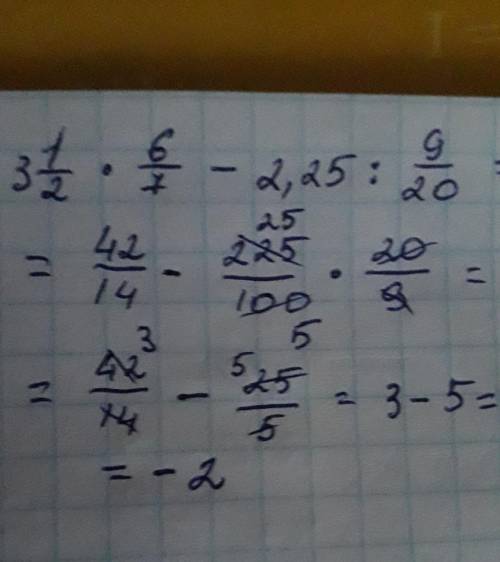 3 1/2 · 6/7 − 2,25 : 9/20 =
= 42/14 − 225/100 · 20/9 = 25 5
= 42/14 3 − 5 25/5 = 3 − 5 =
= − 2